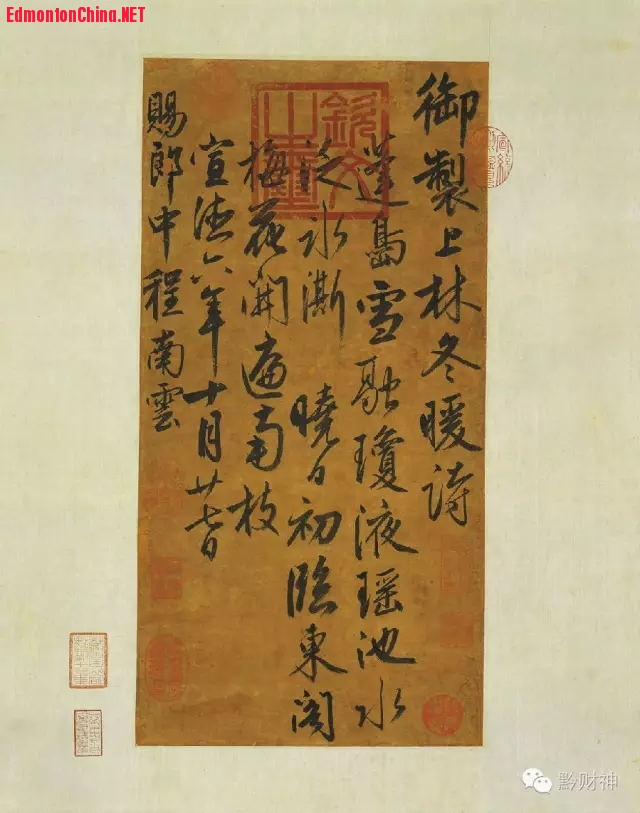 EdmontonChina.NET
御製上林冬暖詩
蓬島雪融瓊液瑶池水
泛氷澌 曉日初臨東閣
梅花開遍南枝
宣德六年十月廿七日
賜郎中程南雲
欽文之璽
黔财神